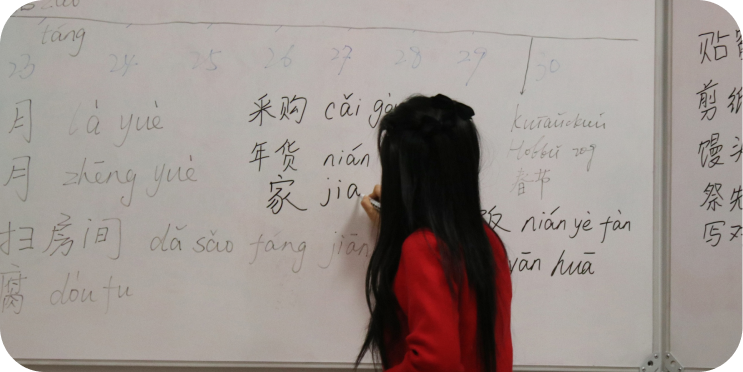 táng
23 24 25 26 27 28 29 30
月 là yuè
月 zhēng yuè
扫房间 dǎ sǎo fáng jiān
腐 dòu fu
采购 cǎi gò
年货 nián
家 jiā
饭 nián yè fàn
yān huā
春节
贴
剪纸
馒头
祭先
写对